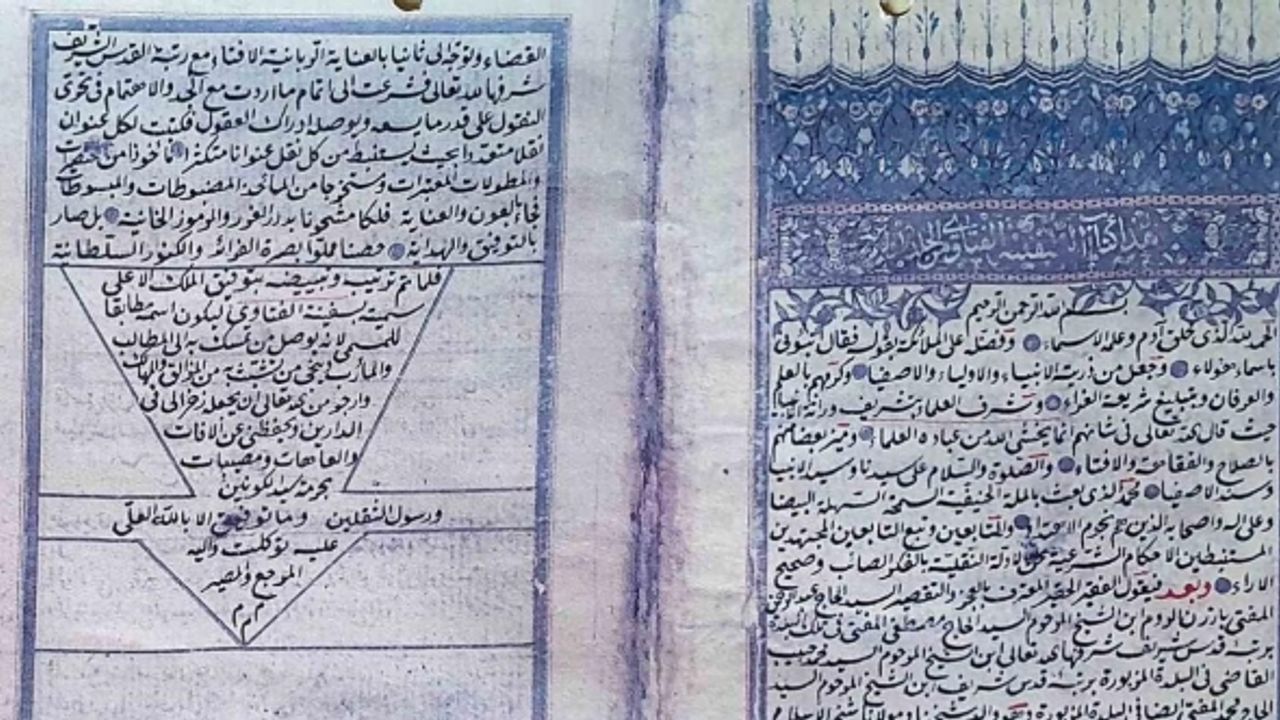 هذا كتاب سفينة الفتاوى الجليلة
بسم الله الرحمن الرحيم
الحمد لله الذي خلق آدم وعلمه الاسماء وفضله على الملائكة بقوله فقال انبئوني
باسماء هؤلاء وجعل من ذريته الانبياء والاولياء والاصفياء وكرمهم بالعلم
والعرفان وبتبليغ شريعة الغراء وشرف العلماء بتشريف وراثة الانبياء
حيث قال الله تعالى في شانهم انما يخشى الله من عباده العلماء وميز بعضهم
بالصلاح والفقاهة والافتاء والصلوة والسلام على سيدنا وسيد الانبياء
وسند الاصفياء محمد الذي بعث بالملة الحنيفية السمحة السهلة البيضاء
وعلى اله واصحابه الذين هم نجوم الاهتداء والتابعين وتبع التابعين المجتهدين
المستنبطين الاحكام الشرعية عن الادلة النقلية بالفكر الصائب وصحيح
الاراء وبعد فيقول الفقير الحقير المعترف بالعجز والتقصير السيد الحاج عبد الرحمن
المفتي بارزن الروم ابن الشيخ المرحوم السيد الحاج مصطفى المفتي في تلك البلدة
برتبة قدس شريف شرفها الله تعالى ابن الشيخ المرحوم السيد محمد حبيب
القاضي في البلدة المزبورة برتبة قدس شريف ابن الشيخ المرحوم السيد
الحاج محمد المفتي ايضا في البلدة المزبورة شيخ الاسلام
القضاء وتوجه الى ثانيا بالعناية الربانية الافتاء مع رتبة القدس الشريف
شرفها الله تعالى فشرعت الى اتمام ما اردت مع الجد والاهتمام في تحرى
النقول على قدر ما يسعه ويوصله ادراك العقول فكتبت لكل عنوان
نقلا متعددا بحيث يستنبط من كل نقل عنوانا متكثرا ماخوذا من
والمطولات المعتبرات ومستخرجا من المضبوطات والمبسوطات
فجاء بالعون والعناية فلكا مشحونا بدرر الغرر والرموز الخانية بل صار
بالتوفيق والهداية حصنا مملوا بصرة الفرائد والكنوز السلطانية
فلما تم ترتيبه وتبييضه بتوفيق الملك الاعلى
سميته بسفينة الفتاوى ليكون اسمه مطابقا
للمسمى لانه يوصل من تمسك به الى المطالب
والمآرب وينجي من تشبث به من المزالق والمهالك
وارجو من الله تعالى ان يجعله ذخرا لي في
الدارين ويحفظني عن الافات
والعاهات ومصيبات
بحرمة سيد الكونين
ورسول الثقلين وما توفيقي الا بالله العلي
عليه توكلت واليه
المرجع والمصير
م م م